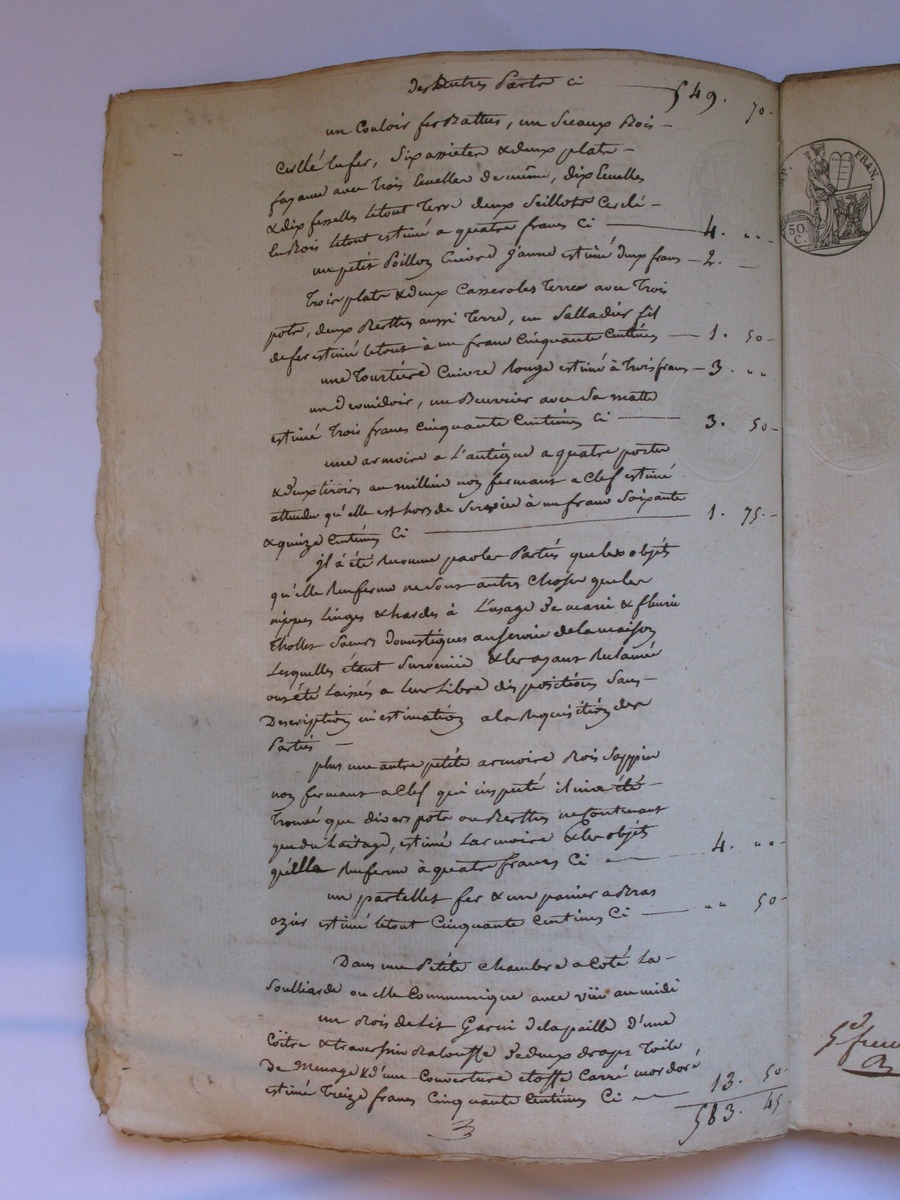 des Autres Parts ci 549. 70-
un Couloir fer Battus, un Seeaux Bois -
Cerllé en fer, Six assietes & deux plats -
fayance avec trois Ecuelles de même, dix Ecuelles
& dix fesselles letout terre deux Seillots Cerclé -
en Bois letout estimé a quatre francs Ci 4. ,, -
un petit Poillon Cuivre jaune estimé deux francs - 2. -
trois plats & deux Casseroles terre avec trois
pots, deux Berthes aussi terre, un Salladier fil
de fer estimé letout à un franc Cinquante Centimes - 1. 50-
une tourtière Cuivre Rouge estimé à trois francs - 3. ,,
un devuidoir, un Beurrier avec Sa matte
estimé trois francs Cinquante Centimes Ci 3. 50-
une armoire a L'antique a quatre portes
& deux tiroirs au millieu non fermant a Clef estimé
attendu qu'elle est hors de Service à un franc Soixante
& quinze Centimes Ci 1. 75.-
jl à été Reconnu par les Parties que les objets
qu'elle Renferme ne Sont autres Choses que les
nippes Linges & hardes à L'usage de marie & fleurie
Soeurs domestiques au Servic de la maison
Lesquelles étant Survenüe & les ayant Réclamé
ont été Laissés a Leur Libre dispositions Sans -
Description ni estimation a la Requisition des
Parties -
plus une autre petite armoire Bois Sappin
non fermant a Clef qui inspecté il ni a été -
trouvé que divers pots ou Berthes ne Contenant
que du Laitage, estimé Larmoire & les objets
qu'elle Renferme à quatre francs Ci 4. ,, -
un partellet fer & un panier a Bras
ozier estimé letout Cinquante Centimes Ci ,, 50-
Dans une Petite Chambre a Coté La -
Soulliarde ou elle Communique avec vüe au midi
un Bois de Lit Garni de la paille d'une
Coitre & traversin Balouffe de deux draps toile
de Menage & d'une Couverture etoffe Carré mordoré
estimé treize francs Cinquante Centimes Ci 13. 50-
583. 45
FRAN.
50
C.